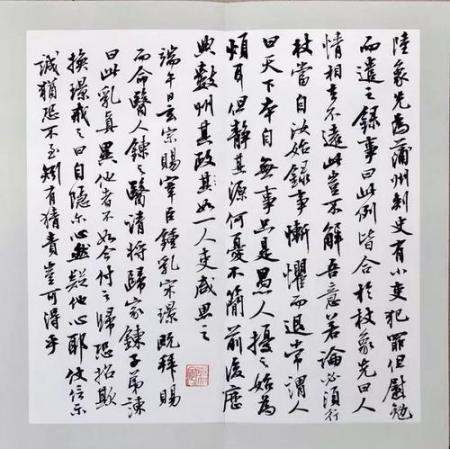 陸象先為蒲州刺史有小吏犯罪但慰勉
而遣之錄事曰此例皆合於杖象先曰人
情相去不遠此豈不解吾意若論必須行
杖當自汝始錄事慚懼而退常謂人
曰天下本自無事只是愚人擾之始為
煩耳但靜其源何憂不簡前後歷
典數州其政其如一人吏咸思之
端午日玄宗賜宰臣鍾乳宋璟既拜賜
而命醫人鍊之醫請將歸家鍊子弟諫
曰此乳真異他者不如今付之歸恐招欺
換璟戒之曰自隱尔心然疑他心耶仗信示
誠猶恐不至矧有猜責豈可得乎